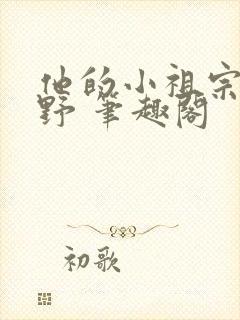 他的小祖宗
野 笔趣阁
初歌